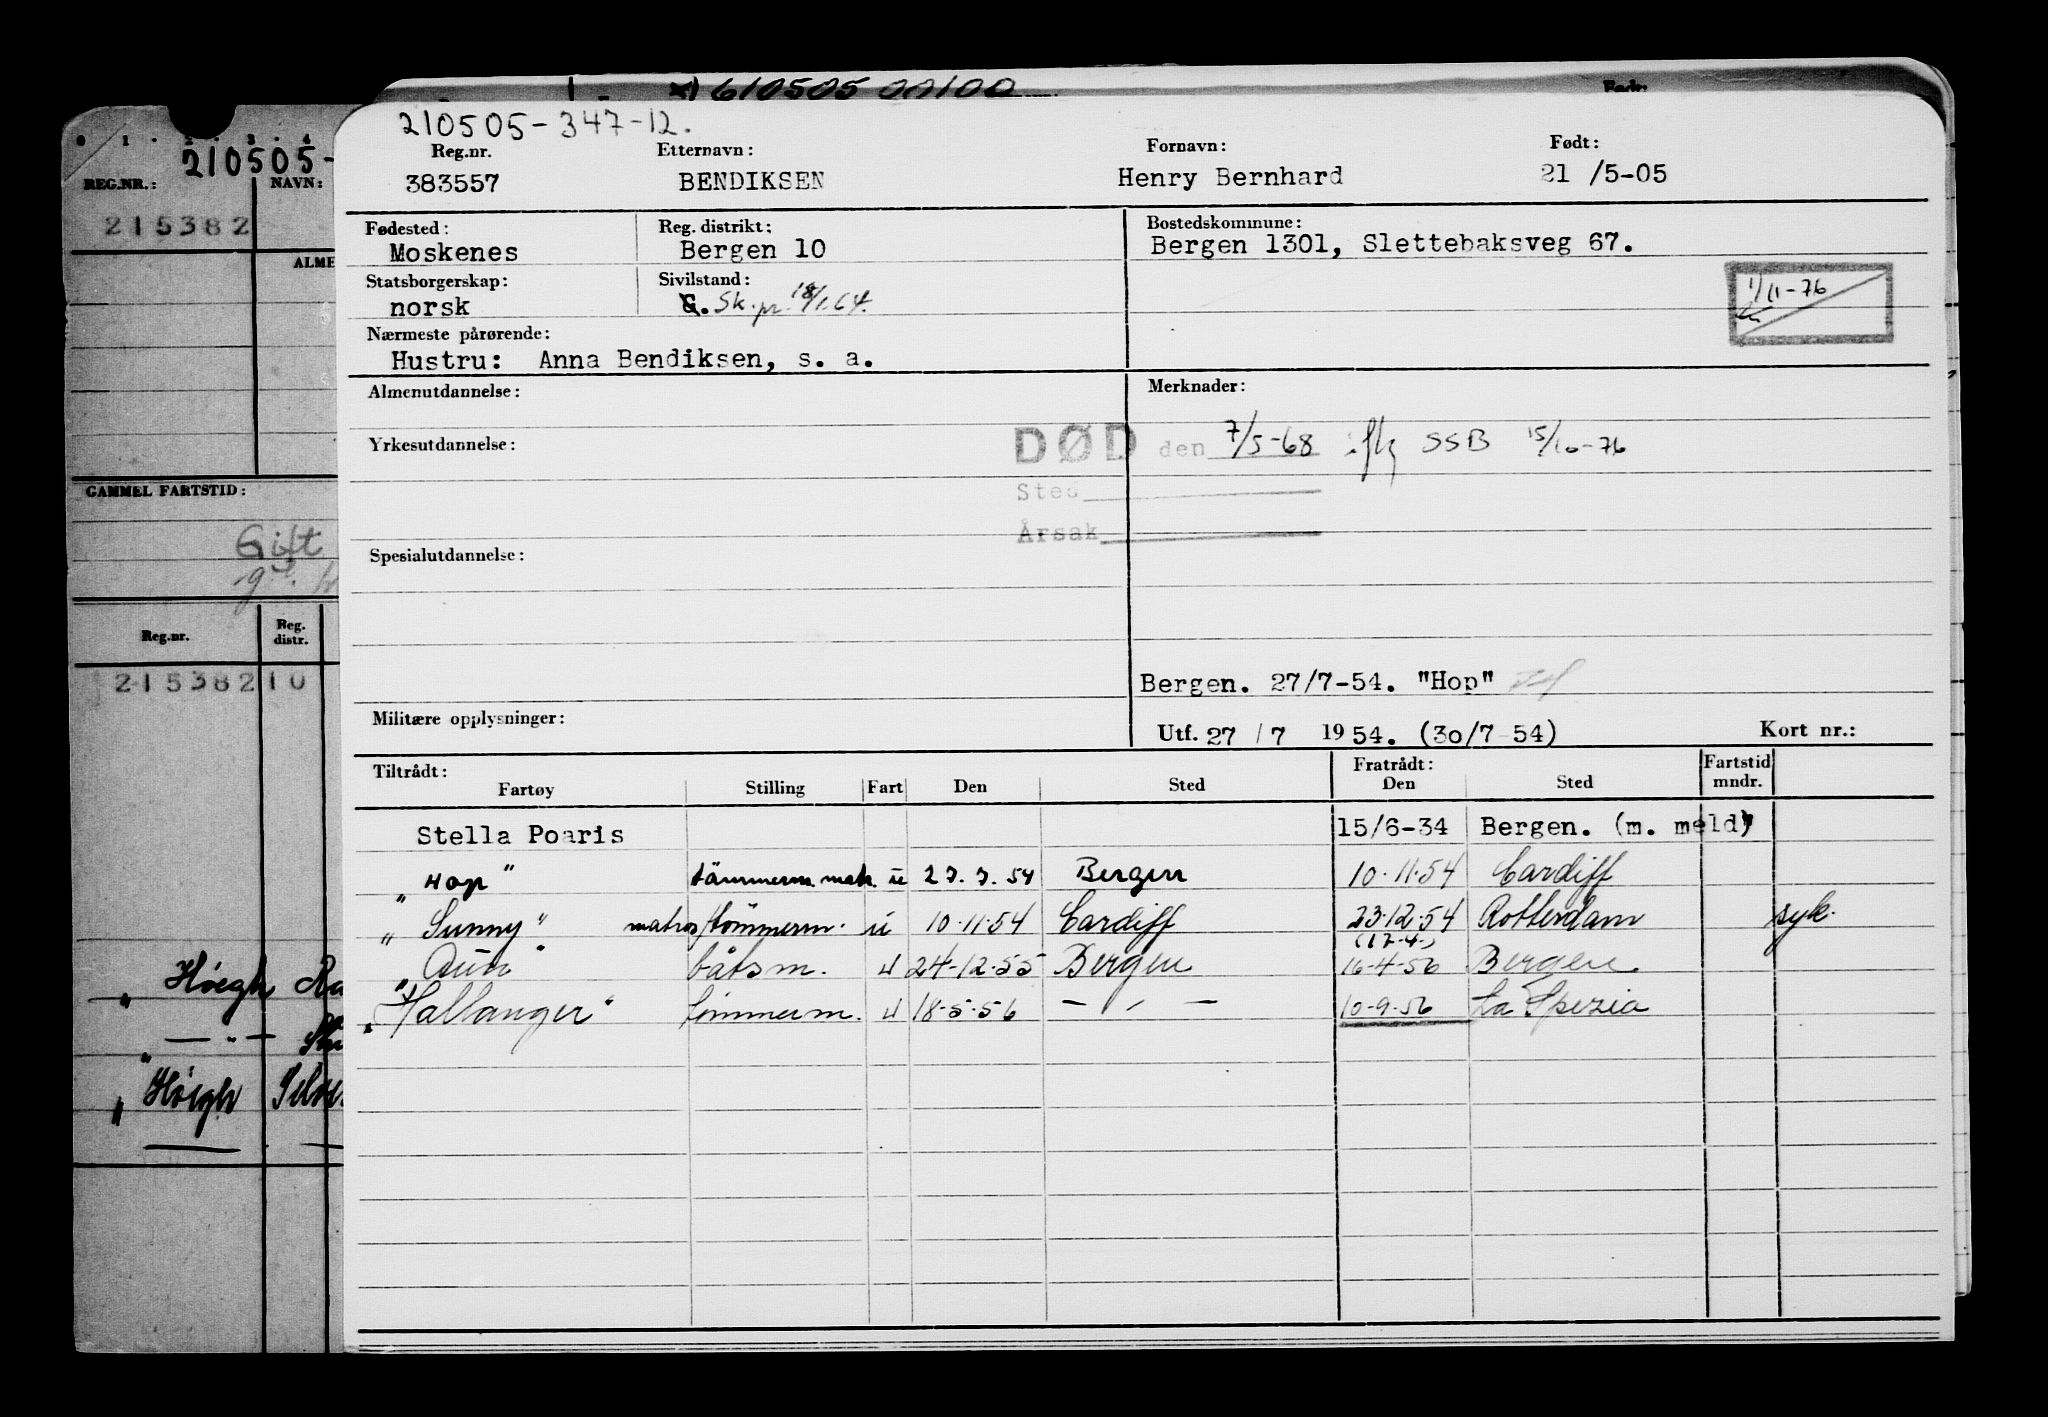 610505 00100
Født:
210505-347-12.
Reg.nr. Etternavn: Fornavn: Født:
383557 BENDIKSEN Henry Bernhard 21 /5-05
Fødested: Reg. distrikt: Bostedskommune:
Moskenes Bergen 10 Bergen 1301, Slettebaksveg 67.
Statsborgerskap: Sivilstand:
norsk G. Sk. pr. 18/1.64. 1/11-76
Nærmeste pårørende:
Hustru: Anna Bendiksen, s. a.
Almenutdannelse: Merknader:
Yrkesutdannelse: DØD den 7/5-68 iflg SSB 15/10-76
Sted
Årsak
Spesialutdannelse:
Bergen. 27/7-54. "Hop"
Militære opplysninger: Utf. 27 / 7 1954. (30/7-54) Kort nr.:
Tiltrådt: Fratrådt: Fartstid
Fartøy Stilling Fart Den Sted Den Sted mndr.
Stella Poaris 15/6-34 Bergen. (m. meld)
"Hop" tömmerm. matr. u 27.7.54 Bergen 10.11.54 Cardiff
"Sunny" matros/tömmerm. u 10.11.54 Cardiff 23.12.54 Rotterdam syk.
(17-4-)
båtsm. u 24-12-55 Bergen 16-4-56 Bergen
"Hallanger" tömmerm. u 18-5-56 — " — 10-9-56 La Spezia
0 1 2 3 4
210505-
REG.NR.: NAVN:
215382
ALME
GAMMEL FARTSTID:
Gift
Reg.nr. Reg. distr.
215382 10
" Høegh Ra
" — " —
" Høegh Silve